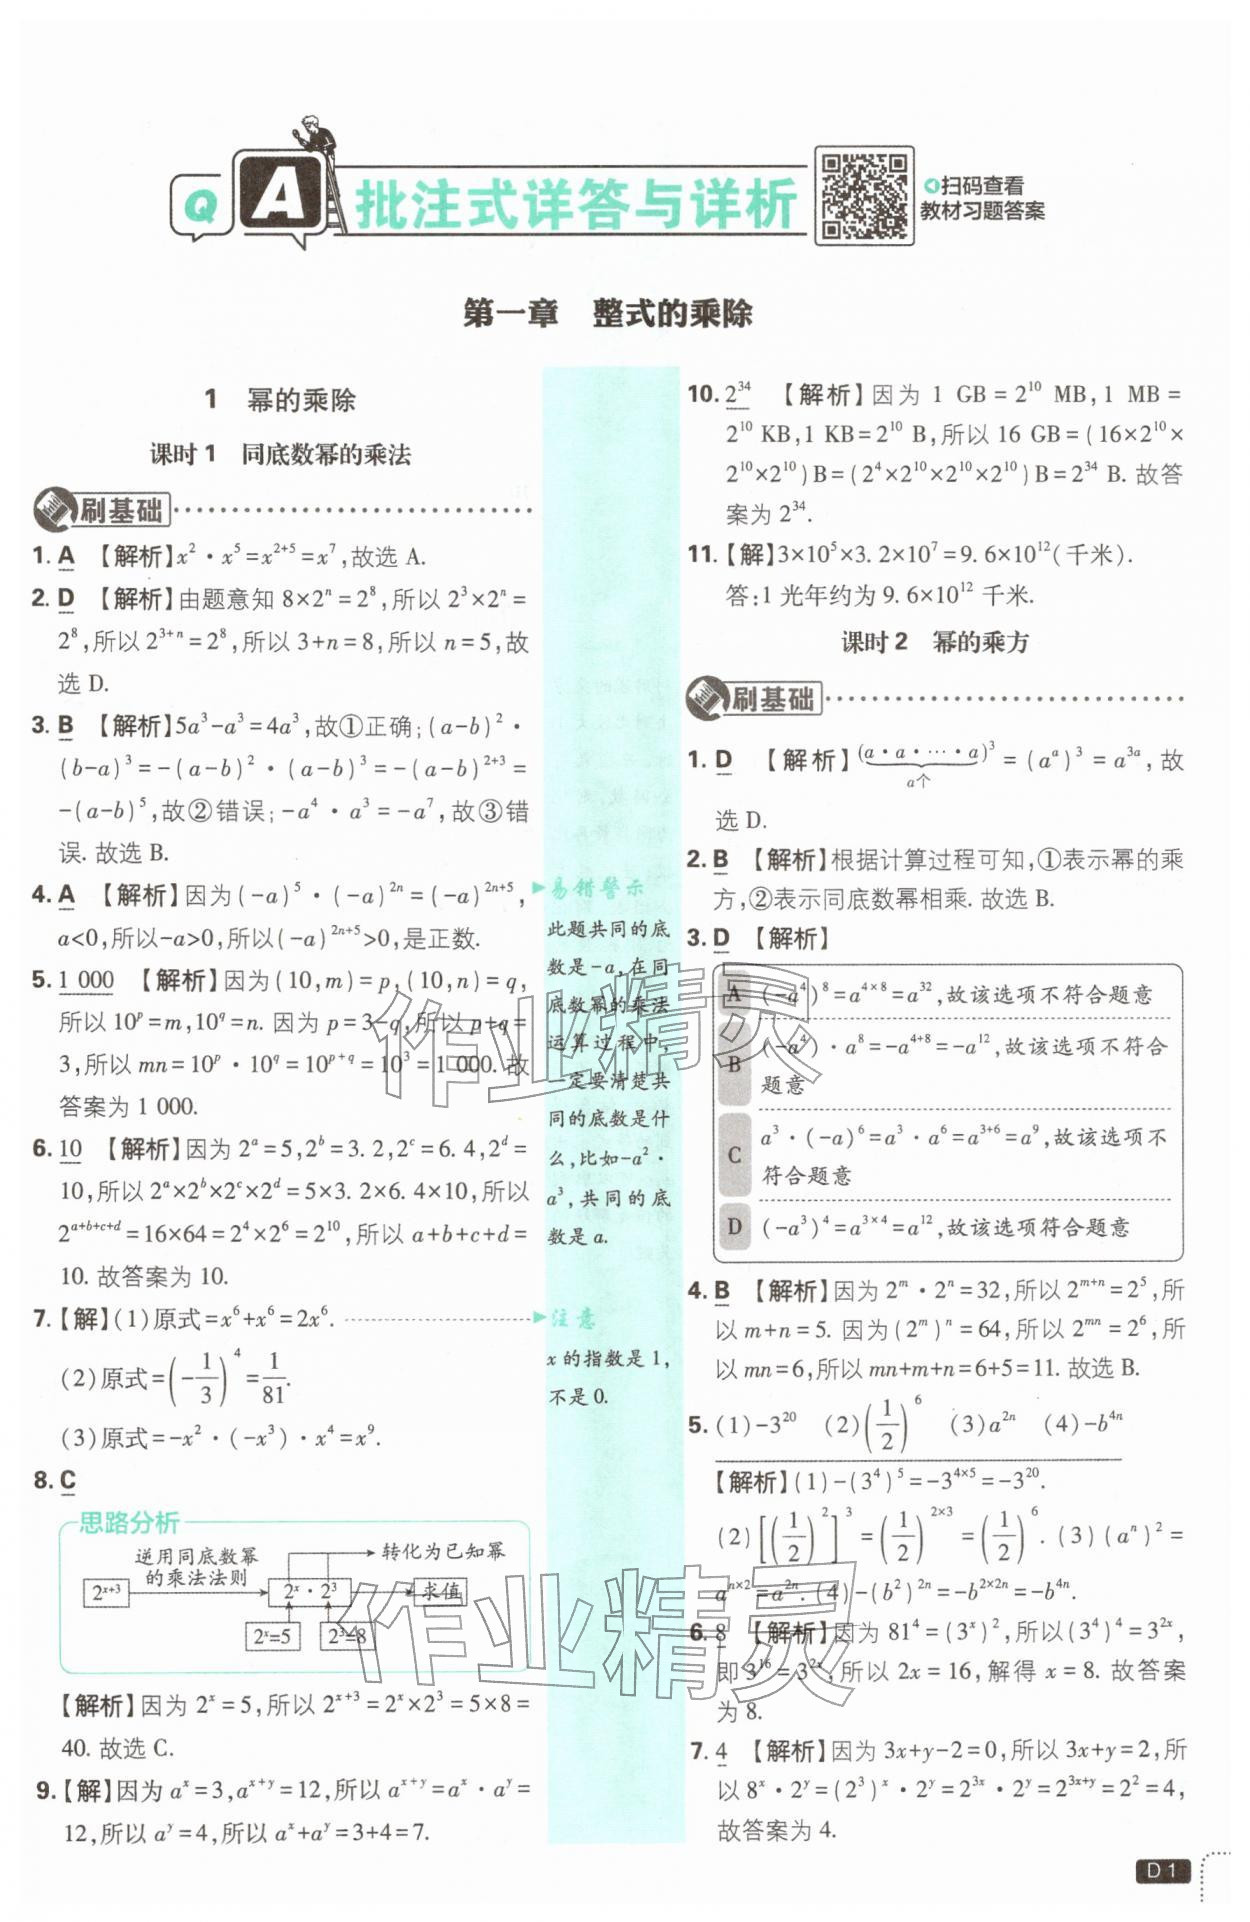 Q A 批注式详答与详析
扫码查看
教材习题答案
第一章 整式的乘除
1 幂的乘除
课时1 同底数幂的乘法
刷基础
1. A 【解析】x²·x⁵=x²⁺⁵=x⁷,故选 A.
2. D 【解析】由题意知 8×2ⁿ=2⁸,所以 2³×2ⁿ=
2⁸,所以 2³⁺ⁿ=2⁸,所以 3+n=8,所以 n=5,故
选 D.
3. B 【解析】5a³-a³=4a³,故①正确;(a-b)²·
(b-a)³=-(a-b)²·(a-b)³=-(a-b)²⁺³=
-(a-b)⁵,故②错误;-a⁴·a³=-a⁷,故③错
误. 故选 B.
4. A 【解析】因为(-a)⁵·(-a)²ⁿ=(-a)²ⁿ⁺⁵,
a<0,所以-a>0,所以(-a)²ⁿ⁺⁵>0,是正数.
5. 1 000 【解析】因为(10,m)=p,(10,n)=q,
所以 10^p=m,10^q=n. 因为 p=3-q,所以 p+q=
3,所以 mn=10^p·10^q=10^(p+q)=10³=1 000. 故
答案为 1 000.
6. 10 【解析】因为 2^a=5,2^b=3.2,2^c=6.4,2^d=
10,所以 2^a×2^b×2^c×2^d=5×3.2×6.4×10,所以
2^(a+b+c+d)=16×64=2⁴×2⁶=2¹⁰,所以 a+b+c+d=
10. 故答案为 10.
7.【解】(1)原式=x⁶+x⁶=2x⁶.
(2)原式=(-1/3)⁴=1/81.
(3)原式=-x²·(-x³)·x⁴=x⁹.
8. C
思路分析
逆用同底数幂
的乘法法则
转化为已知幂
2^(x+3) 2^x·2³ 求值
2^x=5 2³=8
【解析】因为 2^x=5,所以 2^(x+3)=2^x×2³=5×8=
40. 故选 C.
9.【解】因为 a^x=3,a^(x+y)=12,所以 a^(x+y)=a^x·a^y=
12,所以 a^y=4,所以 a^x+a^y=3+4=7.
易错警示
此题共同的底
数是-a,在同
底数幂的乘法
运算过程中,
一定要清楚共
同的底数是什
么,比如-a²·
a³,共同的底
数是 a.
注意
x 的指数是 1,
不是 0.
10. 2³⁴ 【解析】因为 1 GB=2¹⁰ MB,1 MB=
2¹⁰ KB,1 KB=2¹⁰ B,所以 16 GB=(16×2¹⁰×
2¹⁰×2¹⁰)B=(2⁴×2¹⁰×2¹⁰×2¹⁰)B=2³⁴ B. 故答
案为 2³⁴.
11.【解】3×10⁵×3.2×10⁷=9.6×10¹²(千米).
答:1 光年约为 9.6×10¹² 千米.
课时2 幂的乘方
刷基础
1. D 【解析】(a·a·…·a)³=(a^a)³=a^(3a),故
a个
选 D.
2. B 【解析】根据计算过程可知,①表示幂的乘
方,②表示同底数幂相乘. 故选 B.
3. D 【解析】
A (-a⁴)⁸=a⁴ˣ⁸=a³²,故该选项不符合题意
B (-a⁴)·a⁸=-a⁴⁺⁸=-a¹²,故该选项不符合
题意
C a³·(-a)⁶=a³·a⁶=a³⁺⁶=a⁹,故该选项不
符合题意
D (-a³)⁴=a³ˣ⁴=a¹²,故该选项符合题意
4. B 【解析】因为 2^m·2^n=32,所以 2^(m+n)=2⁵,所
以 m+n=5. 因为(2^m)^n=64,所以 2^(mn)=2⁶,所
以 mn=6,所以 mn+m+n=6+5=11. 故选 B.
5. (1)-3²⁰ (2)(1/2)⁶ (3)a²ⁿ (4)-b⁴ⁿ
【解析】(1)-(3⁴)⁵=-3⁴ˣ⁵=-3²⁰.
(2)[(1/2)²]³=(1/2)²ˣ³=(1/2)⁶. (3)(aⁿ)²=
a^(n×2)=a²ⁿ. (4)-(b²)²ⁿ=-b^(2×2n)=-b⁴ⁿ.
6. 8 【解析】因为 81⁴=(3^x)²,所以(3⁴)⁴=3^(2x),
即 3¹⁶=3^(2x),所以 2x=16,解得 x=8. 故答案
为 8.
7. 4 【解析】因为 3x+y-2=0,所以 3x+y=2,所
以 8^x·2^y=(2³)^x·2^y=2^(3x)·2^y=2^(3x+y)=2²=4,
故答案为 4.
D1
作业精灵
作业精灵